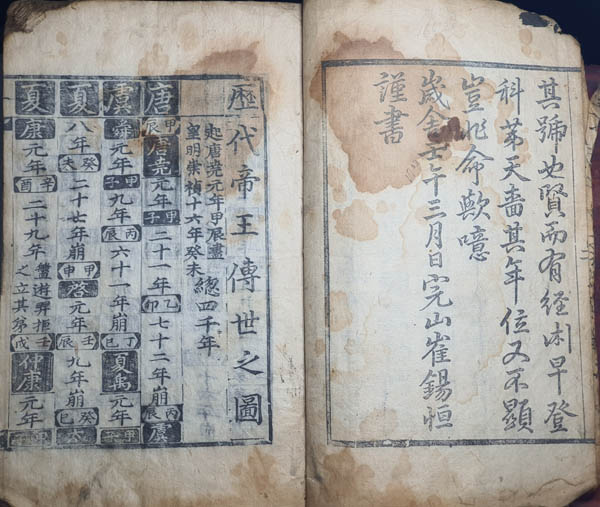 其號如賢而有經術早登
科第天嗇其年位又不顯
豈非命歟噫
歲舍壬午三月日完山崔錫恒
謹書
歷代帝王傳世之圖
起唐堯元年甲辰盡
皇明崇禎十六年癸未總四千年
唐 甲辰 唐堯元年 甲子 二十一年 乙卯 七十二年 丙辰 虞
虞 舜元年 甲子 九年 丙辰 六十一年崩 丁巳 夏禹元年
夏 八年崩 癸 二十七年崩 甲申 啓元年 壬辰 九年崩 癸巳 太
夏 康元年 辛酉 二十九年 盤遊羿拒之立其弟 壬戌 仲康元年